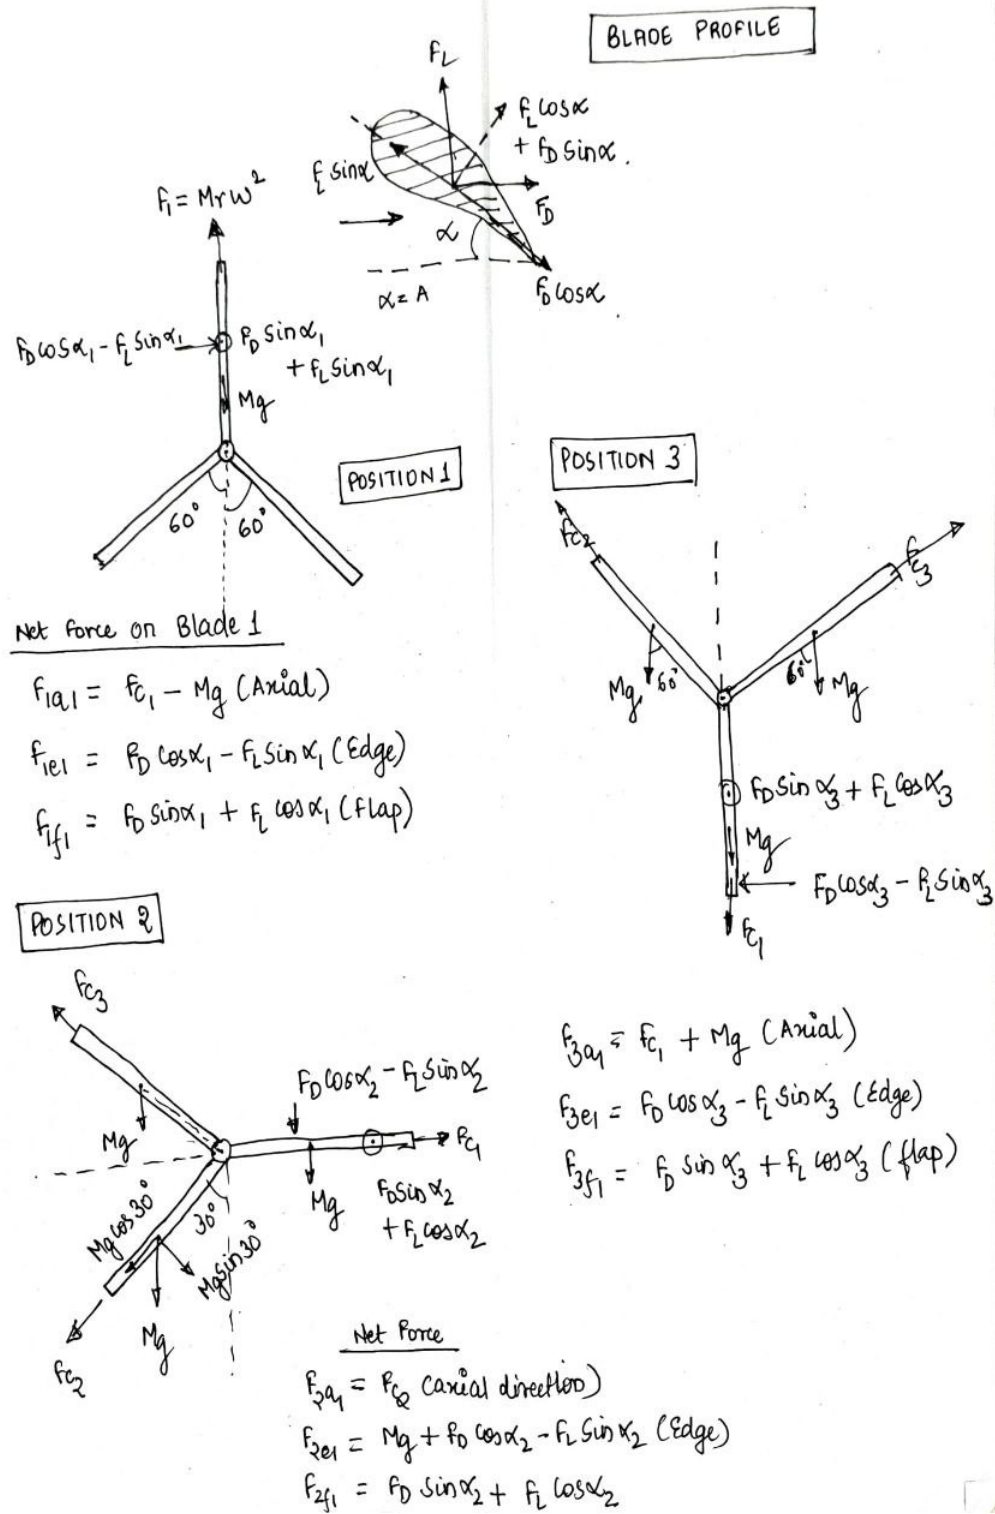 BLADE PROFILE
F_L
F_L cosα
+ F_D sinα.
F_L sinα
F_D
α
α = A
F_D cosα
F_1 = Mrω²
F_D cosα_1 - F_L sinα_1
F_D sinα_1
+ F_L sinα_1
Mg
60° 60°
POSITION 1
Net Force on Blade 1
F_1a1 = F_C1 - Mg (Axial)
F_1e1 = F_D cosα_1 - F_L sinα_1 (Edge)
F_1f1 = F_D sinα_1 + F_L cosα_1 (flap)
POSITION 3
F_C2
F_C3
Mg 60°
60° Mg
F_D sinα_3 + F_L cosα_3
Mg
F_D cosα_3 - F_L sinα_3
F_C1
F_3a1 = F_C1 + Mg (Axial)
F_3e1 = F_D cosα_3 - F_L sinα_3 (Edge)
F_3f1 = F_D sinα_3 + F_L cosα_3 (flap)
POSITION 2
F_C3
Mg
F_D cosα_2 - F_L sinα_2
F_C1
Mg
F_D sinα_2
+ F_L cosα_2
Mg cos30°
30°
Mg sin30°
Mg
F_C2
Net Force
F_2a1 = F_C2 (axial direction)
F_2e1 = Mg + F_D cosα_2 - F_L sinα_2 (Edge)
F_2f1 = F_D sinα_2 + F_L cosα_2